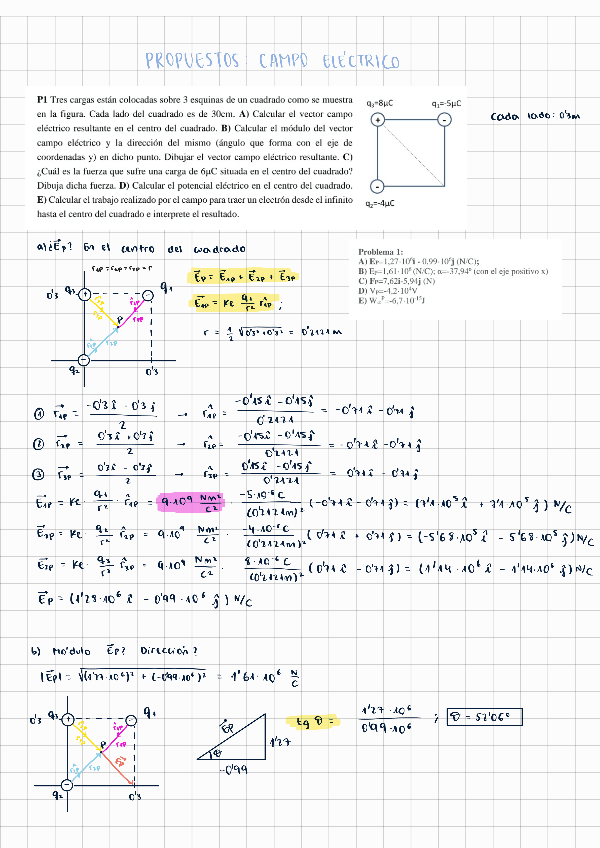 PROPUESTOS: CAMPO ELÉCTRICO
P1 Tres cargas están colocadas sobre 3 esquinas de un cuadrado como se muestra
en la figura. Cada lado del cuadrado es de 30cm. A) Calcular el vector campo
eléctrico resultante en el centro del cuadrado. B) Calcular el módulo del vector
campo eléctrico y la dirección del mismo (ángulo que forma con el eje de
coordenadas y) en dicho punto. Dibujar el vector campo eléctrico resultante. C)
¿Cuál es la fuerza que sufre una carga de 6μC situada en el centro del cuadrado?
Dibuja dicha fuerza. D) Calcular el potencial eléctrico en el centro del cuadrado.
E) Calcular el trabajo realizado por el campo para traer un electrón desde el infinito
hasta el centro del cuadrado e interprete el resultado.
q₃=8μC q₁=-5μC
+ -
-
q₂=-4μC
cada lado: 0'3m
a) ¿E⃗p? En el centro del cuadrado
Problema 1:
A) Eᴘ=1,27·10⁶i - 0,99·10⁶j (N/C);
B) Eᴘ=1,61·10⁶ (N/C); α=-37,94º (con el eje positivo x)
C) Fᴘ=7,62i-5,94j (N)
D) Vᴘ=-4,2·10⁴V
r₁p = r₂p = r₃p = r
E⃗p = E⃗1p + E⃗2p + E⃗3p
E⃗1p = Ke q₁/r² r̂1p ;
r = 1/2 √0'3² + 0'3² = 0'2121m
0'3 q₃ + - q₁
P
r̂1p
r1p
r̂2p r2p
q₂ - 0'3
① r⃗1p = (-0'3î - 0'3ĵ)/2 → r̂1p = (-0'15î - 0'15ĵ)/0'2121 = -0'71î - 0'71ĵ
② r⃗2p = (0'3î + 0'3ĵ)/2 → r̂2p = (0'15î - 0'15ĵ)/0'2121 = 0'71î - 0'71ĵ
③ r⃗3p = (0'3î - 0'3ĵ)/2 → r̂3p = (0'15î - 0'15ĵ)/0'2121 = 0'71î - 0'71ĵ
E⃗1p = Ke · q₁/r² · r̂1p = 9·10⁹ Nm²/C² · -5·10⁻⁶C/(0'2121m)² (-0'71î - 0'71ĵ) = (7'1·10⁵î + 7'1·10⁵ĵ) N/C
E⃗2p = Ke · q₂/r² · r̂2p = 9·10⁹ Nm²/C² · -4·10⁻⁶C/(0'2121m)² (0'71î + 0'71ĵ) = (-5'68·10⁵î - 5'68·10⁵ĵ) N/C
E⃗3p = Ke · q₃/r² · r̂3p = 9·10⁹ Nm²/C² · 8·10⁻⁶C/(0'2121m)² (0'71î - 0'71ĵ) = (1'14·10⁶î - 1'14·10⁶ĵ) N/C
E⃗p = (1'28·10⁶î - 0'99·10⁶ĵ) N/C
b) Módulo E⃗p? Dirección?
|E⃗p| = √(1'27·10⁶)² + (-0'99·10⁶)² = 1'61·10⁶ N/C
0'3 q₃ + - q₁
P
r̂1p
r1p
r̂2p r2p E⃗p
q₂ - 0'3
E⃗p
θ
1'27
-0'99
tg θ = 1'27·10⁶/0'99·10⁶ ; θ = 52'06º